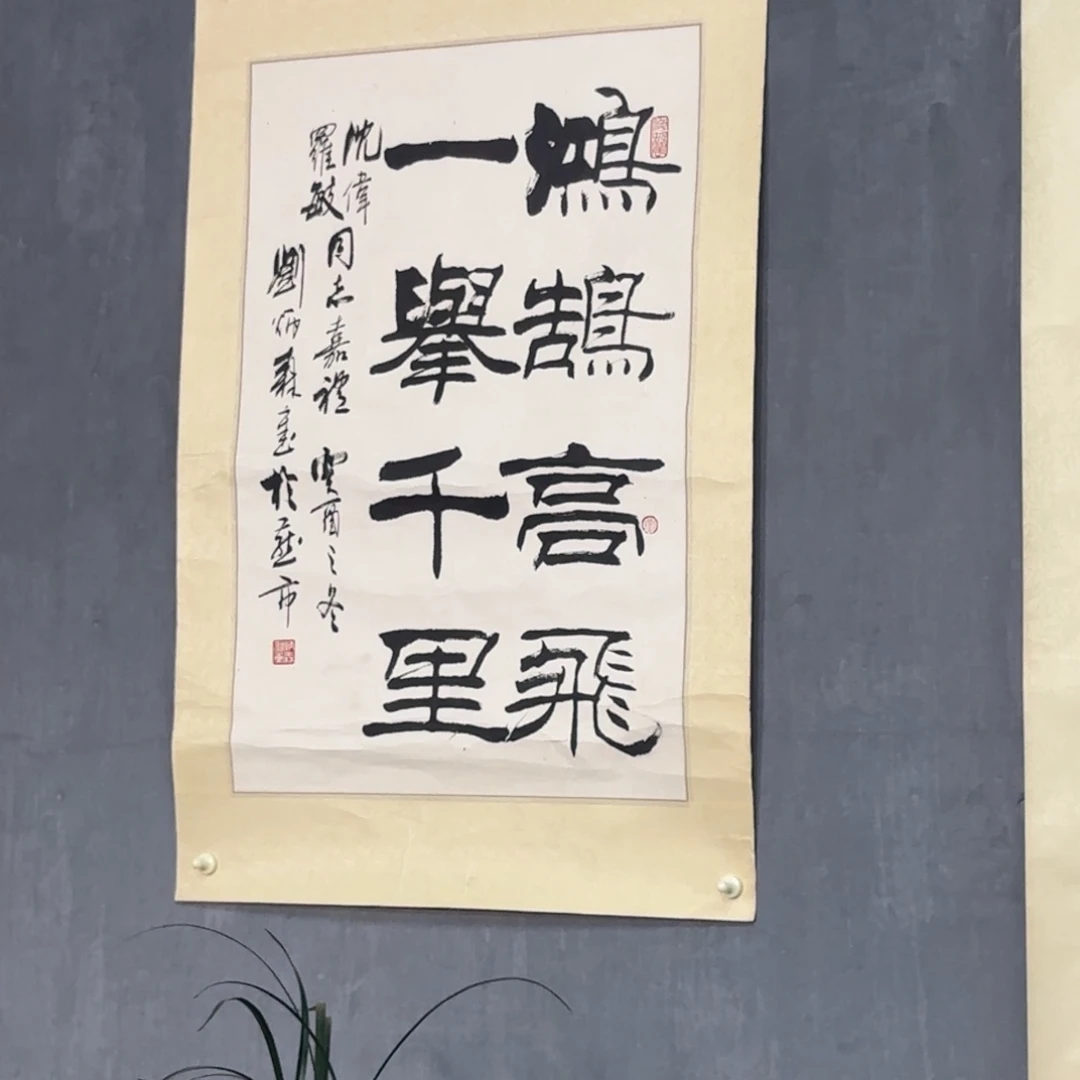 鴻鵠高飛
一舉千里
沈偉
羅敏同志嘉禮 癸酉之冬
劉炳森書於燕市